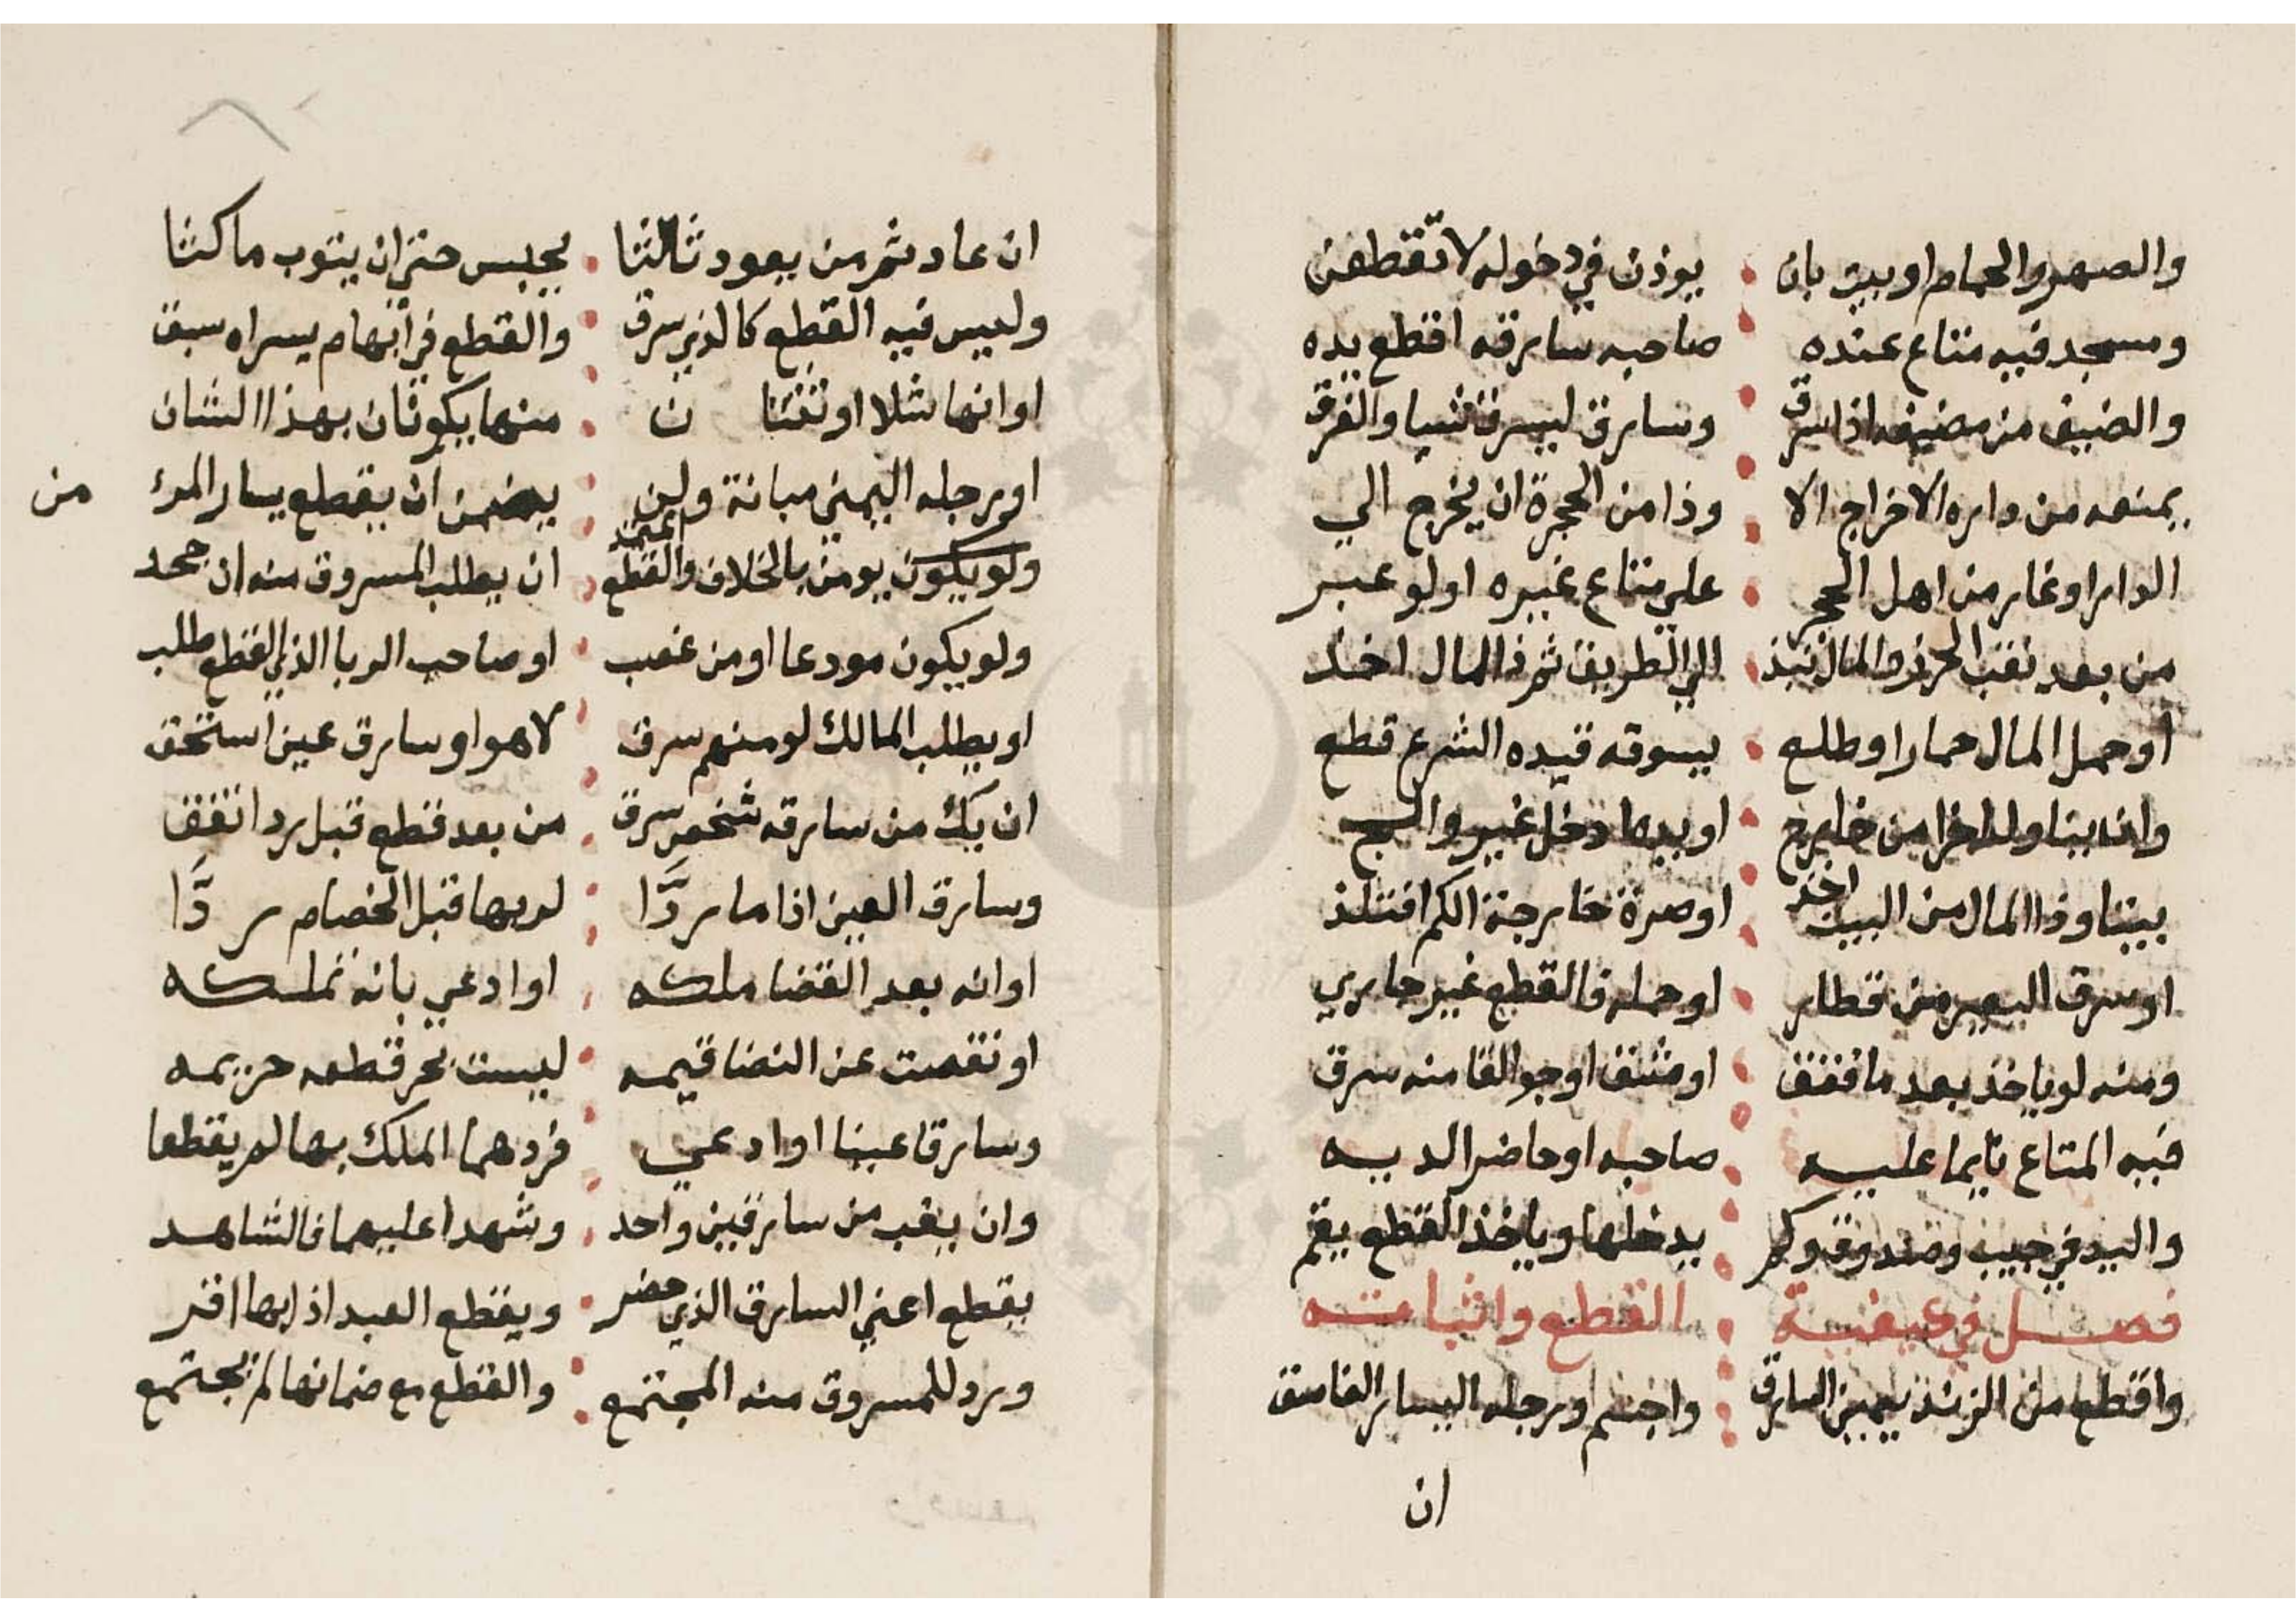 والصهر والحمام او بيت بان يوذن في دخوله لا تقطعن
ومسجد فيه متاع عنده صاحبه سارقه اقطع يده
والضيف من مضيفه اذا سرق وسارق ليسرق شيا والفرق
يمنعه من داره الاخراج الا وذا من الحجرة ان يخرج الي
الدار او غار من اهل الحجر علي متاع غيره او لو عبر
من بعد نقب الحرز والمال نبذ الي الطريق ثم ذا المال اخذ
او حمل المال حمارا وطلع يسوقه قيده الشرع قطع
وان يناول اخرا من خارج او يدها دخل غير والج
بيتا وذا المال من البيت اخذ او صرة خارجة الكم افتلذ
او سرق البعير من قطار او حمله فالقطع غير جاري
ومنه لو ياخذ بعد ما فتق او شق او جوالقا منه سرق
فيه المتاع نايما عليه صاحبه او حاضر لديه
واليد في جيب وصندوق وكم يدخلها وياخذ القطع يقم
فصل في كيفية القطع واثباته
واقطع من الزند يمين السارق واحسم ورجله اليسار الفاسق
ان
ان عاد ثم من يعود ثالثا يحبس حتى ان يتوب ماكثا
وليس فيه القطع كالذي سرق والقطع في ابهام يسراه سبق
او انها شلا او ثنتان منها يكونان بهذا الشان
او رجله اليمني مبانة ولن يضمن ان يقطع يسار المرء من
ولو يكون يومن بالخلاف والقطع اعتمد ان يطلب المسروق منه ان جحد
ولو يكون مودعا او من غصب او صاحب الربا الذي القطع طلب
او يطلب المالك لو منهم سرق لا هو او سارق عين استحق
ان يك من سارقه شخص سرق من بعد قطع قبل رد اتفق
وسارق العين اذا ما ردا لربها قبل الخصام ردا
او انه بعد القضا ملكه او ادعي بانه تملكه
او نقصت عن النصا قيمه ليست تحر قطعه حريمه
وسارقا عينا او ادعي فردهما الملك بها لم يقطعا
وان يغب من سارقين واحد وشهدا عليهما فالشاهد
يقطع اعني السارق الذي حضر ويقطع العبد اذا بها اقر
ورد للمسروق منه المجتمع والقطع مع ضمانها لم يجتمع